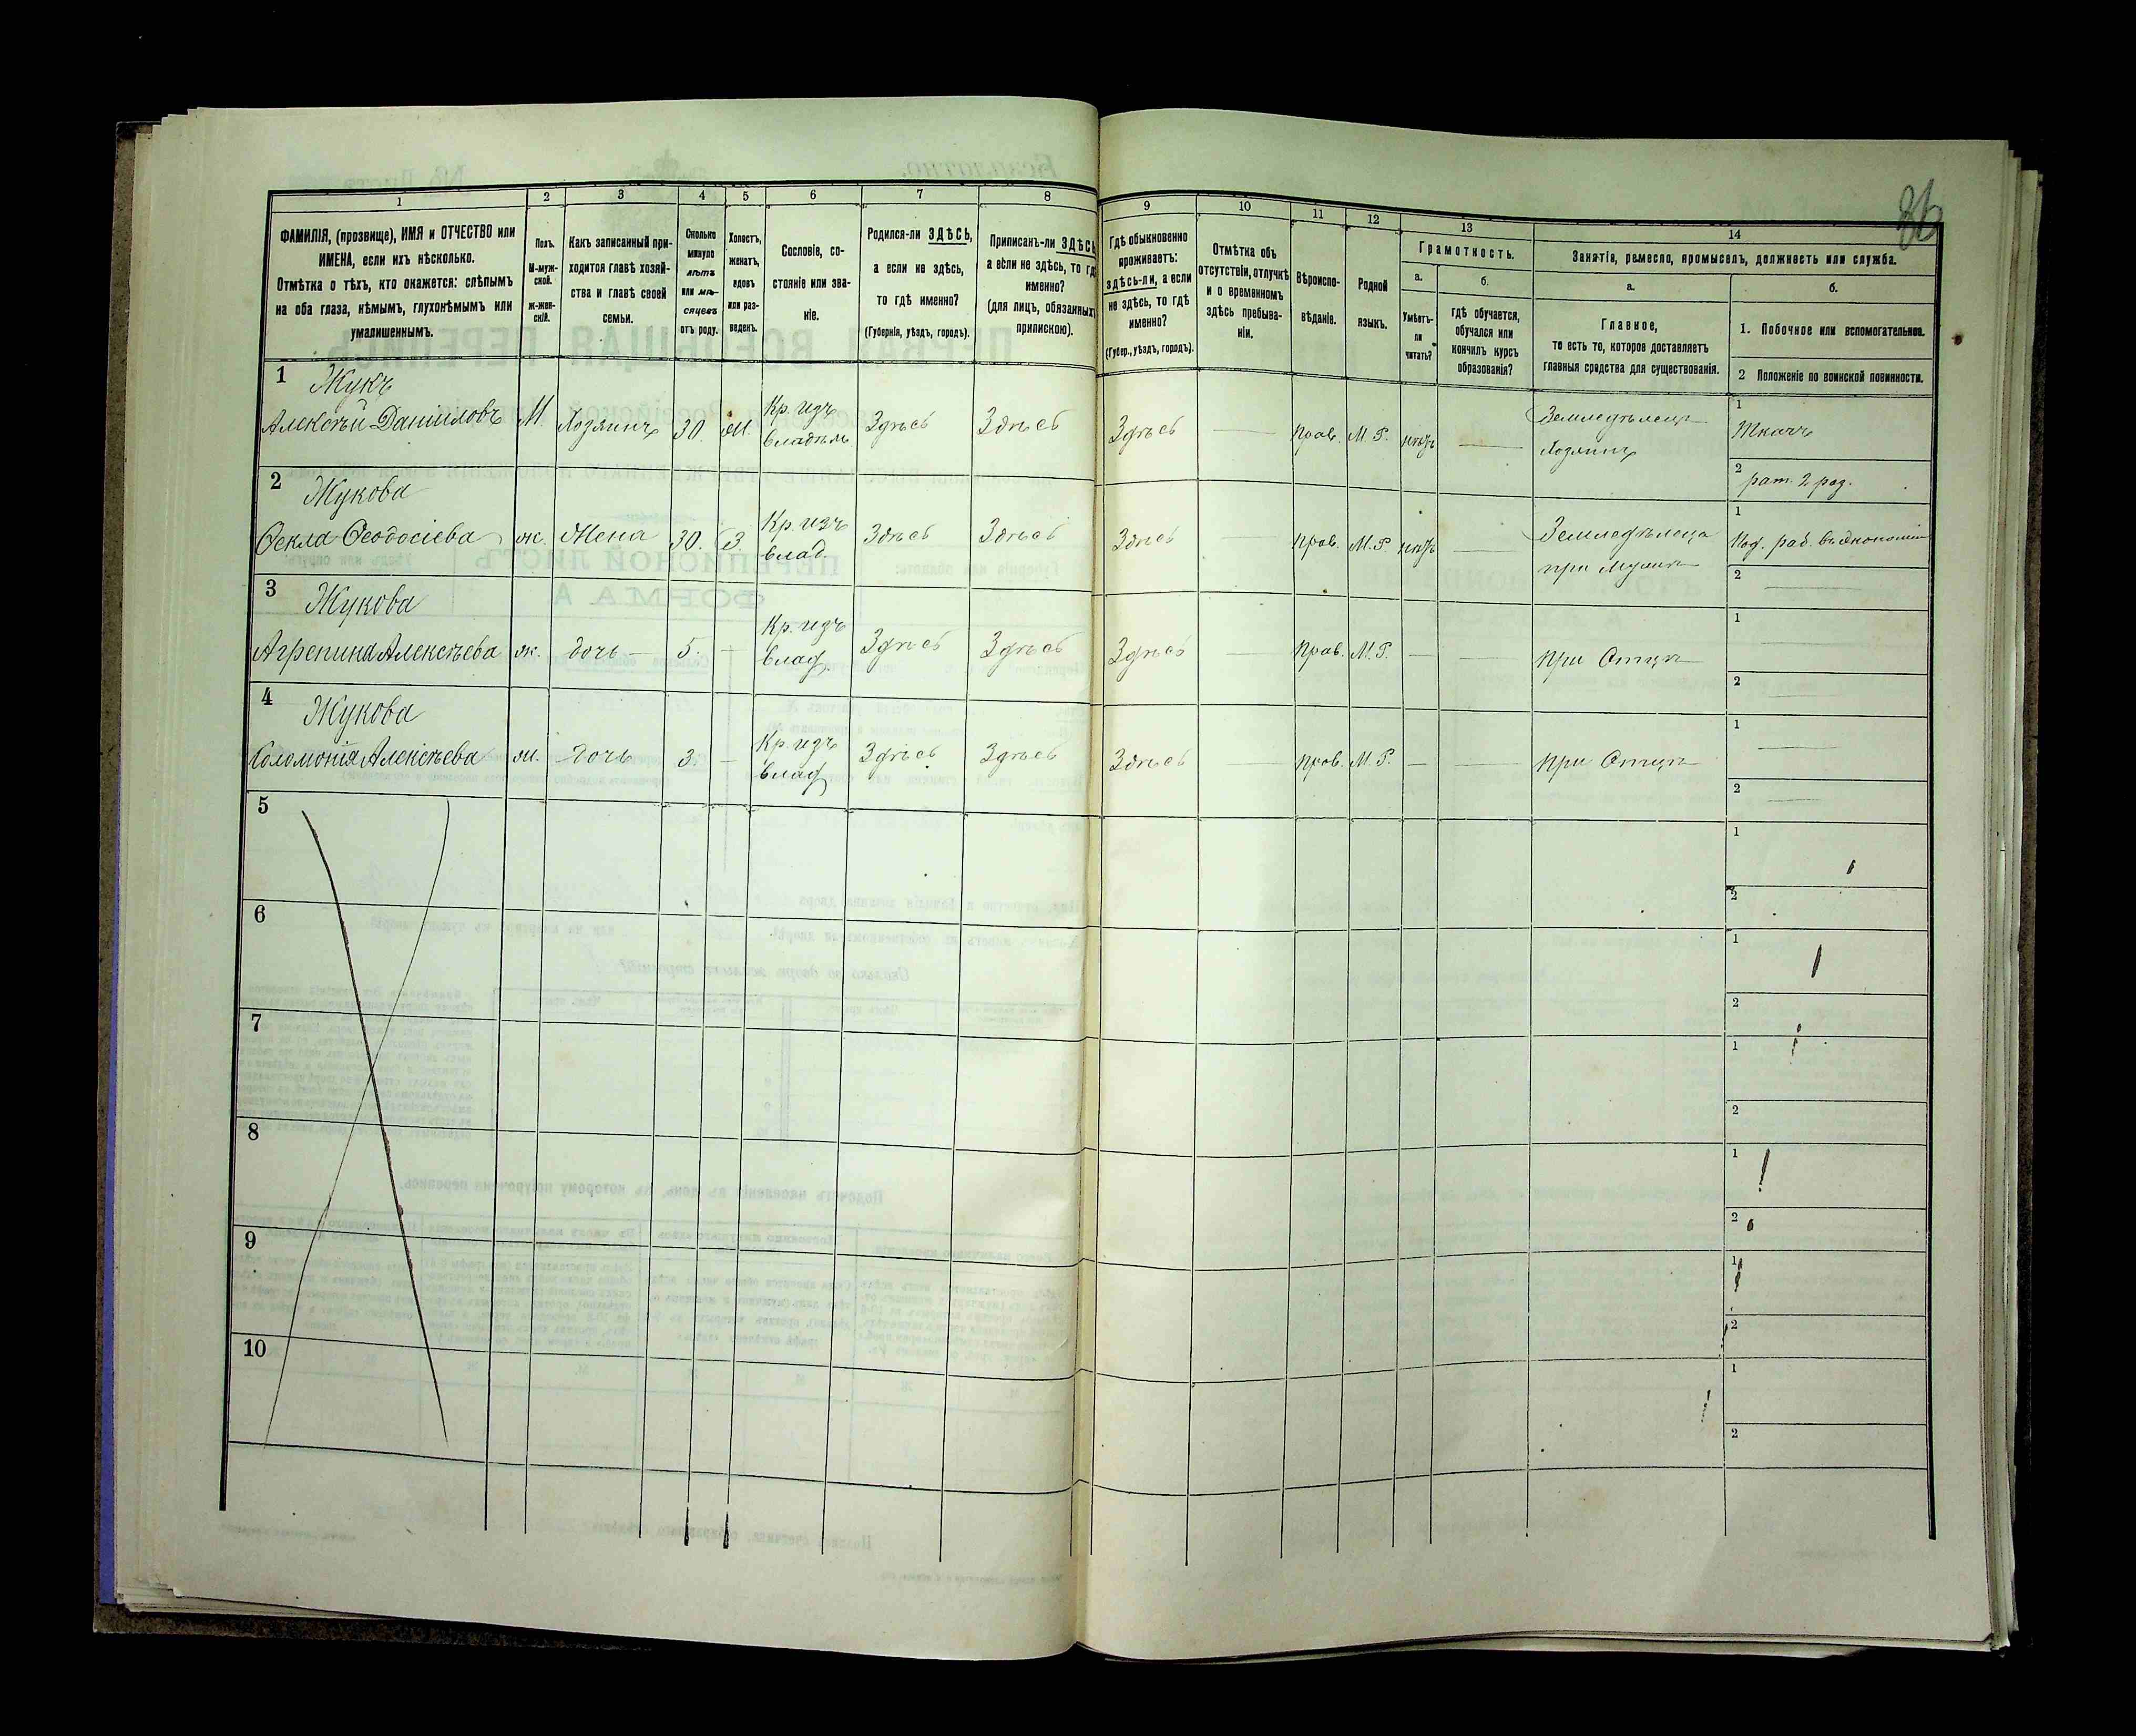 86
1 2 3 4 5 6 7 8 9 10 11 12 13 14
ФАМИЛІЯ, (прозвище), ИМЯ и ОТЧЕСТВО или
ИМЕНА, если ихъ нѣсколько.
Отмѣтка о тѣхъ, кто окажется: слѣпымъ
на оба глаза, нѣмымъ, глухонѣмымъ или
умалишеннымъ.
Полъ.
М-муж-
ской.
ж-жен-
скій.
Какъ записанный при-
ходится главѣ хозяй-
ства и главѣ своей
семьи.
Сколько
минуло
лѣтъ
или мѣ-
сяцевъ
отъ роду.
Холостъ,
женатъ,
вдовъ
или раз-
веденъ.
Сословіе, со-
стояніе или зва-
ніе.
Родился-ли ЗДѢСЬ,
а если не здѣсь,
то гдѣ именно?
(Губернія, уѣздъ, городъ).
Приписанъ-ли ЗДѢСЬ
а если не здѣсь, то гдѣ
именно?
(для лицъ, обязанныхъ
припискою).
Гдѣ обыкновенно
проживаетъ:
здѣсь-ли, а если
не здѣсь, то гдѣ
именно?
(Губер., уѣздъ, городъ).
Отмѣтка объ
отсутствіи, отлучкѣ
и о временномъ
здѣсь пребыва-
ніи.
Вѣроиспо-
вѣданіе.
Родной
языкъ.
Грамотность.
а.
Умѣетъ-
ли
читать?
б.
гдѣ обучается,
обучался или
кончилъ курсъ
образованія?
Занятія, ремесло, промыселъ, должность или служба.
а.
Главное,
то есть то, которое доставляетъ
главныя средства для существованія.
б.
1. Побочное или вспомогательное.
2 Положеніе по воинской повинности.
1 Жукъ
Алексѣй Даниловъ М. Хозяинъ 30. Кр. изъ
владѣл. Здѣсь Здѣсь Здѣсь — прав. М.Р. нѣтъ — Земледѣлецъ
Хозяинъ
1 Ткачъ
2 рат. 2 раз.
2 Жукова
Ѳекла Ѳеодосіева ж. Жена 30. З. Кр. изъ
влад. Здѣсь Здѣсь Здѣсь — прав. М.Р. нѣтъ — Земледѣлица
при мужѣ
1 Под. раб. въ экономіи
2 —
3 Жукова
Агрепина Алексѣева ж. дочь — 5. — Кр. изъ
влад. Здѣсь Здѣсь Здѣсь — прав. М.Р. — — при Отцѣ
1 —
2 —
4 Жукова
Соломонія Алексѣева ж. дочь 3. — Кр. изъ
влад Здѣсь Здѣсь Здѣсь — прав. М.Р. — — при Отцѣ
1 —
2 —
5
1
2
6
1
2
7
1
2
8
1
2
9
1
2
10
1
2